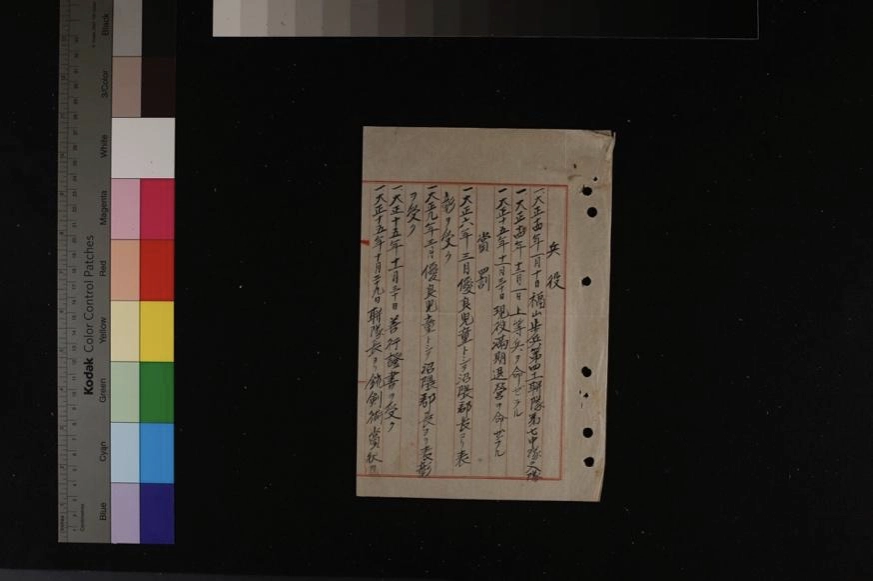 兵役
一大正十四年一月十日福山歩兵第四十一聯隊第七中隊入隊
一大正十四年十二月一日上等兵ヲ命ゼラル
一大正十五年十一月三十日現役満期退営ヲ命ゼラル
賞罰
一大正六年三月優良児童トシテ沼隈郡長ヨリ表
彰ヲ受ク
一大正九年三月優良児童トシテ沼隈郡長ヨリ表彰
ヲ受ク
一大正十五年十一月三十日善行證書ヲ受ク
一大正十五年十月二十九日聯隊長ヨリ銃剣術賞状ヲ
Kodak Color Control Patches
Blue
Cyan
Green
Yellow
Red
Magenta
White
3/Color
Black
Centimetres